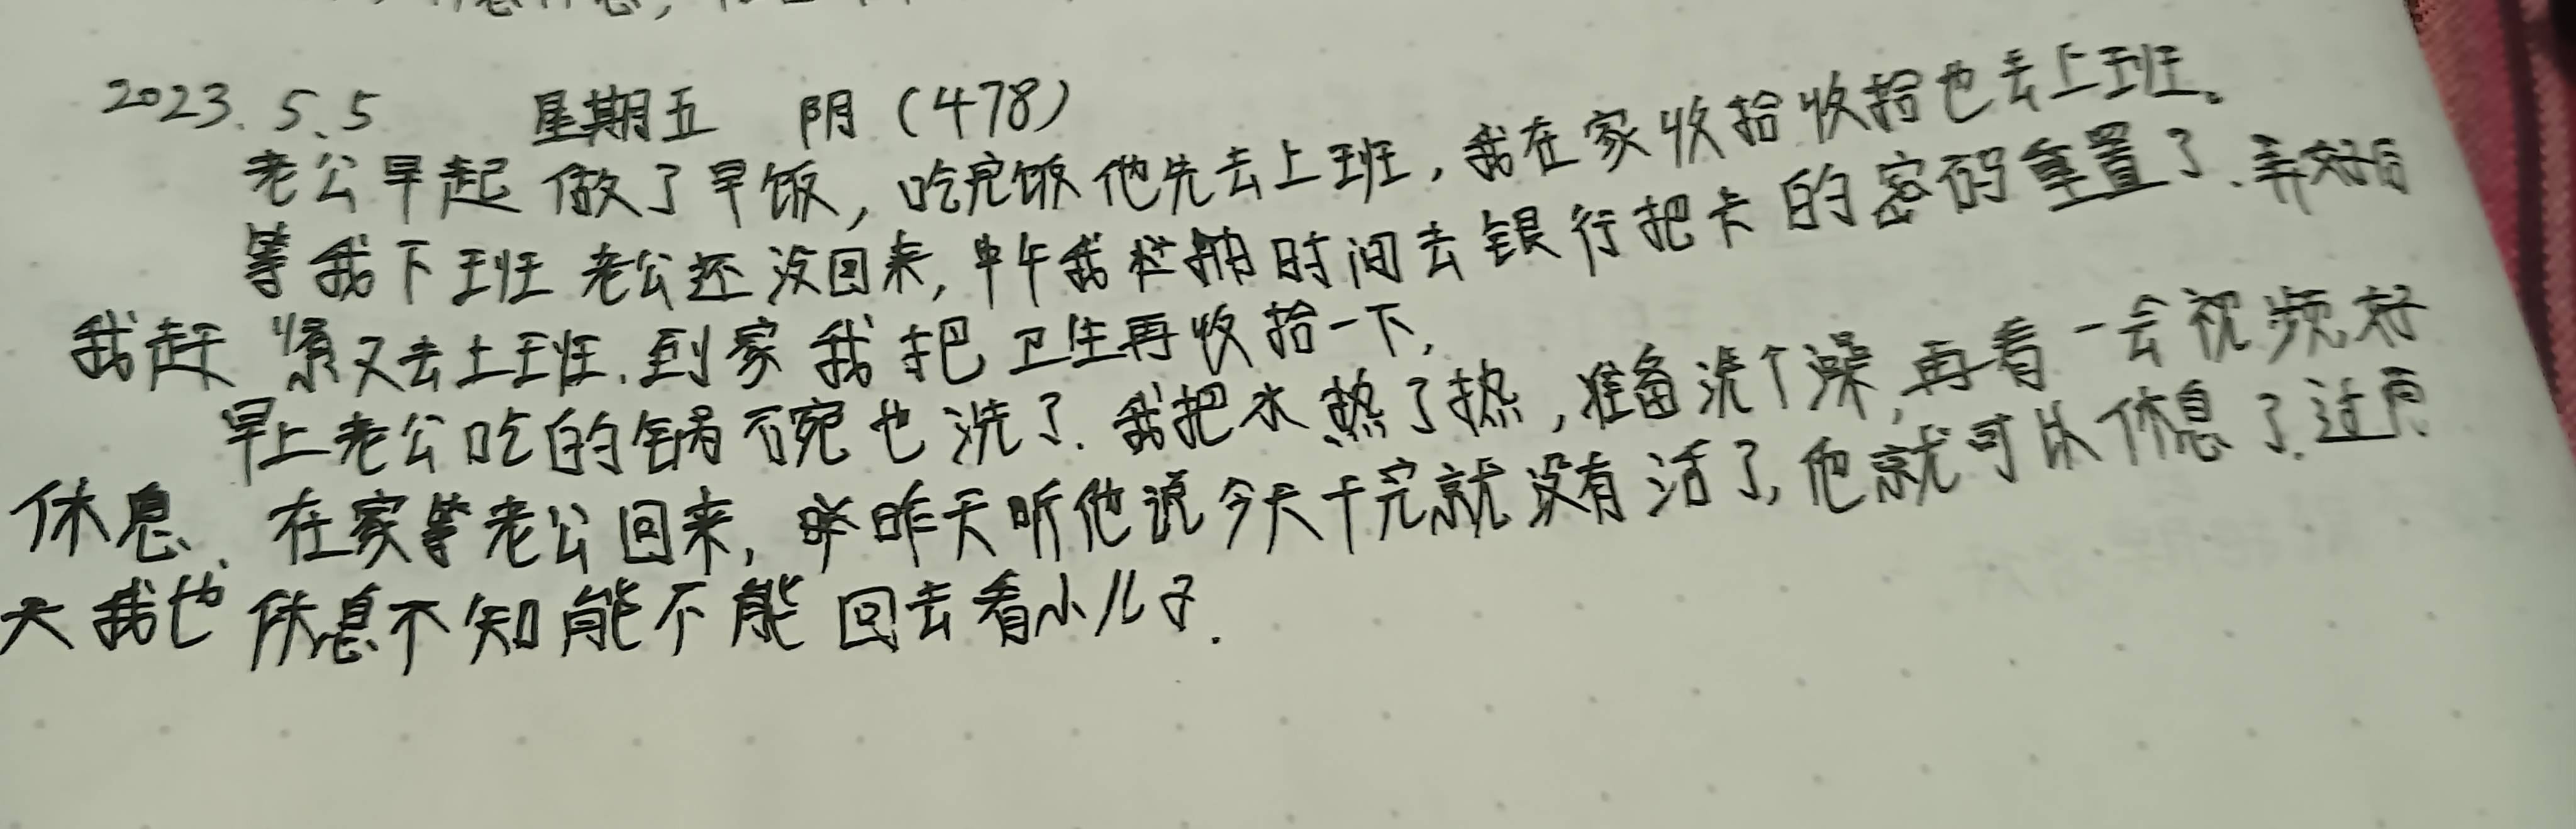 2023.5.5 星期五 阴(478)
老公早起做了早饭,吃完饭他先去上班,我在家收拾收拾也去上班。
等我下班老公还没回来,中午我抽时间去银行把卡的密码重置了.弄好后
我赶紧又去上班.到家我把卫生再收拾一下,
早上老公吃的锅碗也洗了.我把水热了热,准备洗个澡,再看一会视频好
休息、在家等老公回来,昨天听他说今天干完就没有活了,他就可以休息了.过
天我也休息不知能不能回去看小儿子.